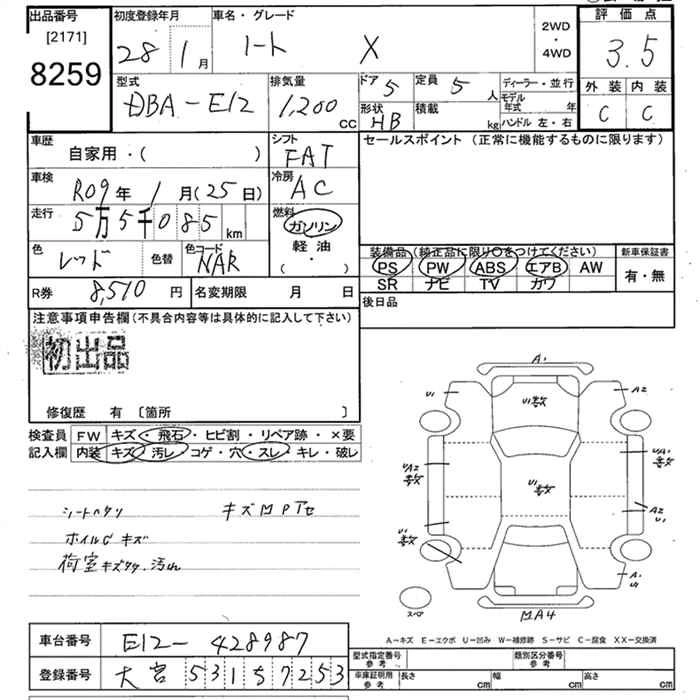 出品番号
[2171]
8259
初度登録年月
28 1月
車名・グレード
ノート X
2WD
・
4WD
評価点
3.5
外装 内装
C C
型式
DBA-E12
排気量
1,200 CC
ドア 5
定員 5 人
形状 HB
積載 kg
ディーラー・並行
モデル年式 年
ハンドル 左・右
車歴
自家用・( )
シフト
FAT
セールスポイント (正常に機能するものに限ります)
車検
R09年 1月(25日)
冷房
AC
走行
5万5千085km
燃料
ガソリン
軽油
( ・ )
色
レッド
色替
色コード
NAR
装備品 (純正品に限り○をつけてください)
PS PW ABS エアB AW
SR ナビ TV カワ
新車保証書
有・無
R券 8,510 円
名変期限 月 日
後日品
注意事項申告欄(不具合内容等は具体的に記入して下さい)
初出品
修復歴 有 〔箇所 〕
検査員記入欄
FW キズ・飛石・ヒビ割・リペア跡・×要
内装 キズ・汚レ・コゲ・穴・スレ・キレ・破レ
シートヘタリ
ホイルG キズ
荷室キズ
A1
U1 A2
U1数
UA2数 UA1数
U1数
U1数 A2 U1
A1
スペア
MA4
A-キズ E-エクボ U-凹み W-補修跡 S-サビ C-腐食 XX-交換済
車台番号 E12-428987
登録番号 大宮 531 5 7253
型式指定番号 参考
類別区分番号 参考
車庫証明用 参考
長さ cm
幅 cm
高さ cm